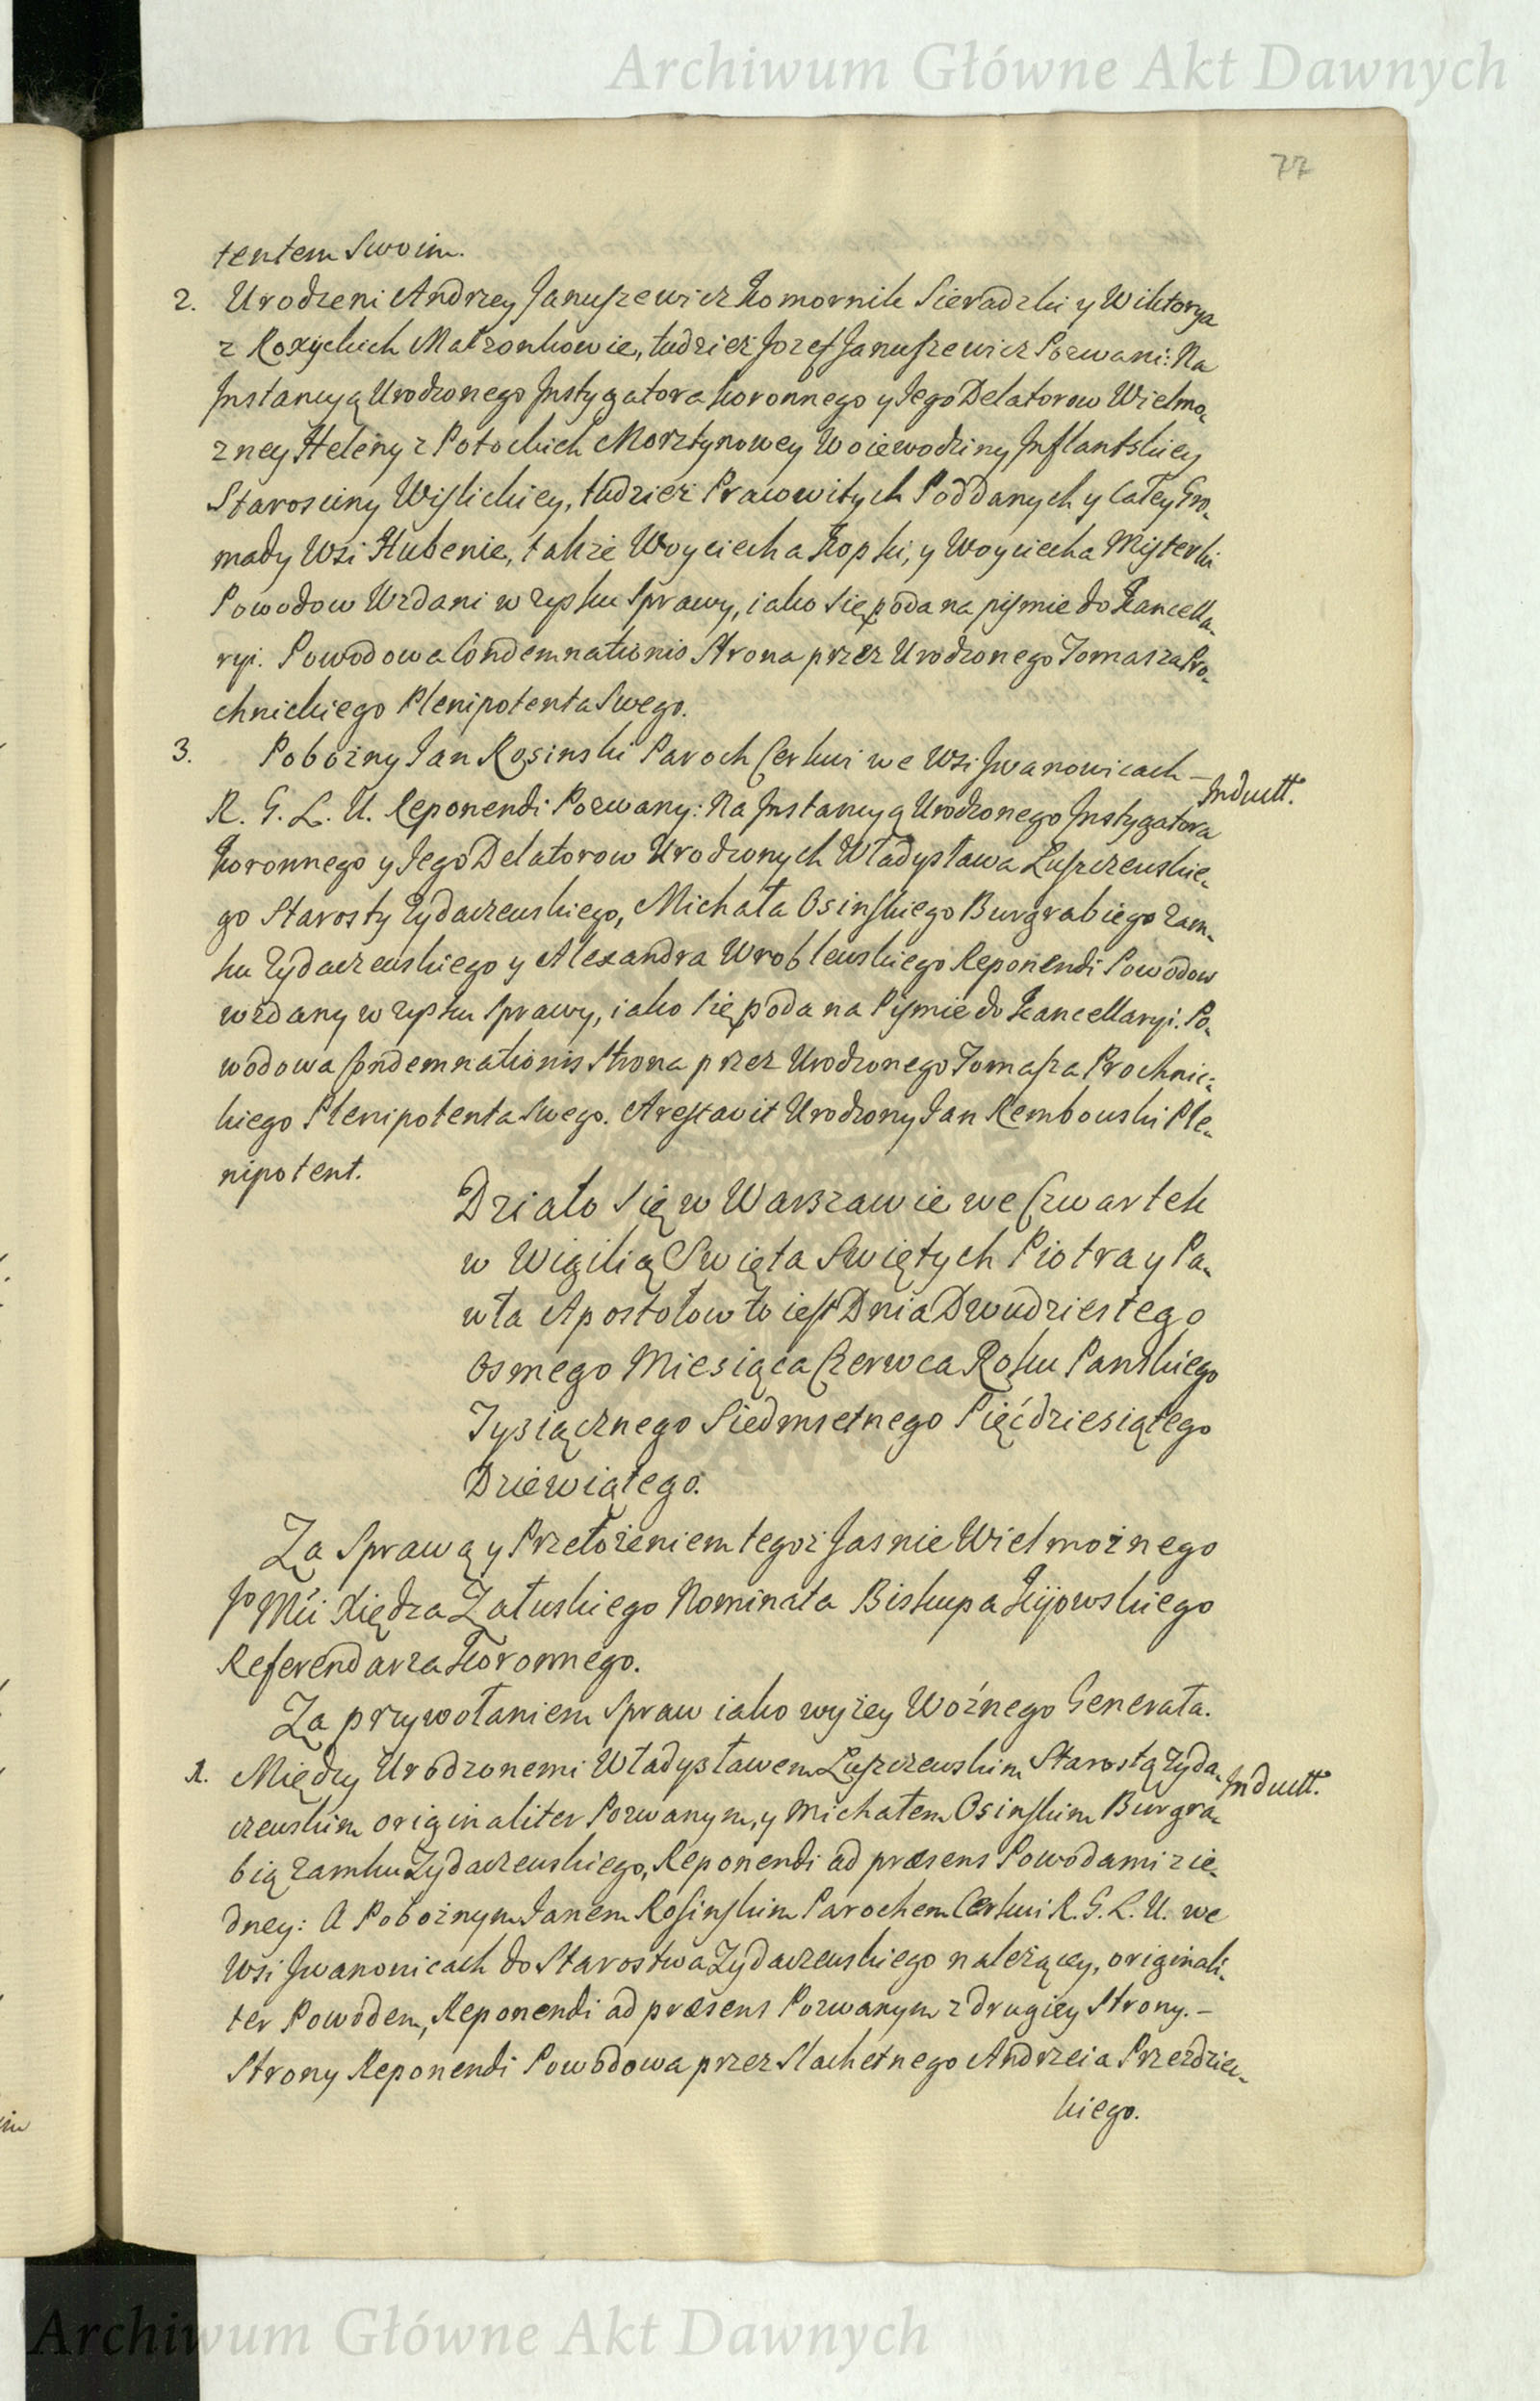 Archiwum Główne Akt Dawnych
77
tentem Swoim.
2. Urodzeni Andrzey Januszewicz Komornik Sieradzki y Wiktorya
z Roxyckich Małzonkowie, tudziez Jozef Januszewicz Pozwani: Na
Instancyą Urodzonego Instygatora Koronnego y Jego Delatorow Wielmo-
zney Heleny z Potockich Morsztynowey Woiewodziny Inflantskiey
Starosciny Wislickiey, tudziez Prawowitych Poddanych y Całey Gro-
mady Wsi Hubenie, takze Woyciecha Kopki, y Woyciecha Misterki
Powodow Wzdani w zysku Sprawy, iako Się poda na pismie do Kancella-
ryi. Powodowa Condemnationis Strona przez Urodzonego Tomasza Pro-
chnickiego Plenipotenta Swego.
3. Pobozny Jan Rosinski Paroch Cerkwi we Wsi Iwanowicach –
Inductt.
R. G. L. U. Reponendi Pozwany: Na Instancyą Urodzonego Instygatora
Koronnego y Jego Delatorow Urodzonych Władysława Luszczewskie-
go Starosty Zydaczewskiego, Michała Osinskiego Burgrabiego Zam-
ku Zydaczewskiego y Alexandra Wroblewskiego Reponendi Powodow
wzdany w zysku Sprawy, iako Się poda na Pismie do Kancellaryi. Po-
wodowa Condemnationis Strona przez Urodzonego Tomasza Prochnic-
kiego Plenipotenta Swego. Arestavit Urodzony Jan Rembowski Ple-
nipotent.
Działo Się w Warszawie we Czwartek
w Wigilią Swięta Swiętych Piotra y Pa-
wła Apostołow to iest Dnia Dwudziestego
Osmego Miesiąca Czerwca Roku Panskiego
Tysiącznego Siedmsetnego Pięćdziesiątego
Dziewiątego.
Za Sprawą y Przełożeniem tegoż Jasnie Wielmożnego
Jo Mći Xiędza Załuskiego Nominata Biskupa Kijowskiego
Referendarza Koronnego.
Za przywołaniem Spraw iako wyżey Woźnego Generała.
1. Między Urodzonemi Władysławem Luszczewskim Starostą Zyda-
Induct.
czewskim originaliter Pozwanym, y Michałem Osinskim Burgra-
bią Zamku Zydaczewskiego, Reponendi ad præsens Powodami z ie-
dney: A Poboznym Janem Rosinskim Parochem Cerkwi R. G. L. U. we
Wsi Iwanowicach do Starostwa Zydaczewskiego należącey, originali-
ter Powodem, Reponendi ad præsens Pozwanym z drugiey Strony. –
Strony Reponendi Powodowa przez Slachetnego Andrzeia Przezdziec-
kiego.
Archiwum Główne Akt Dawnych